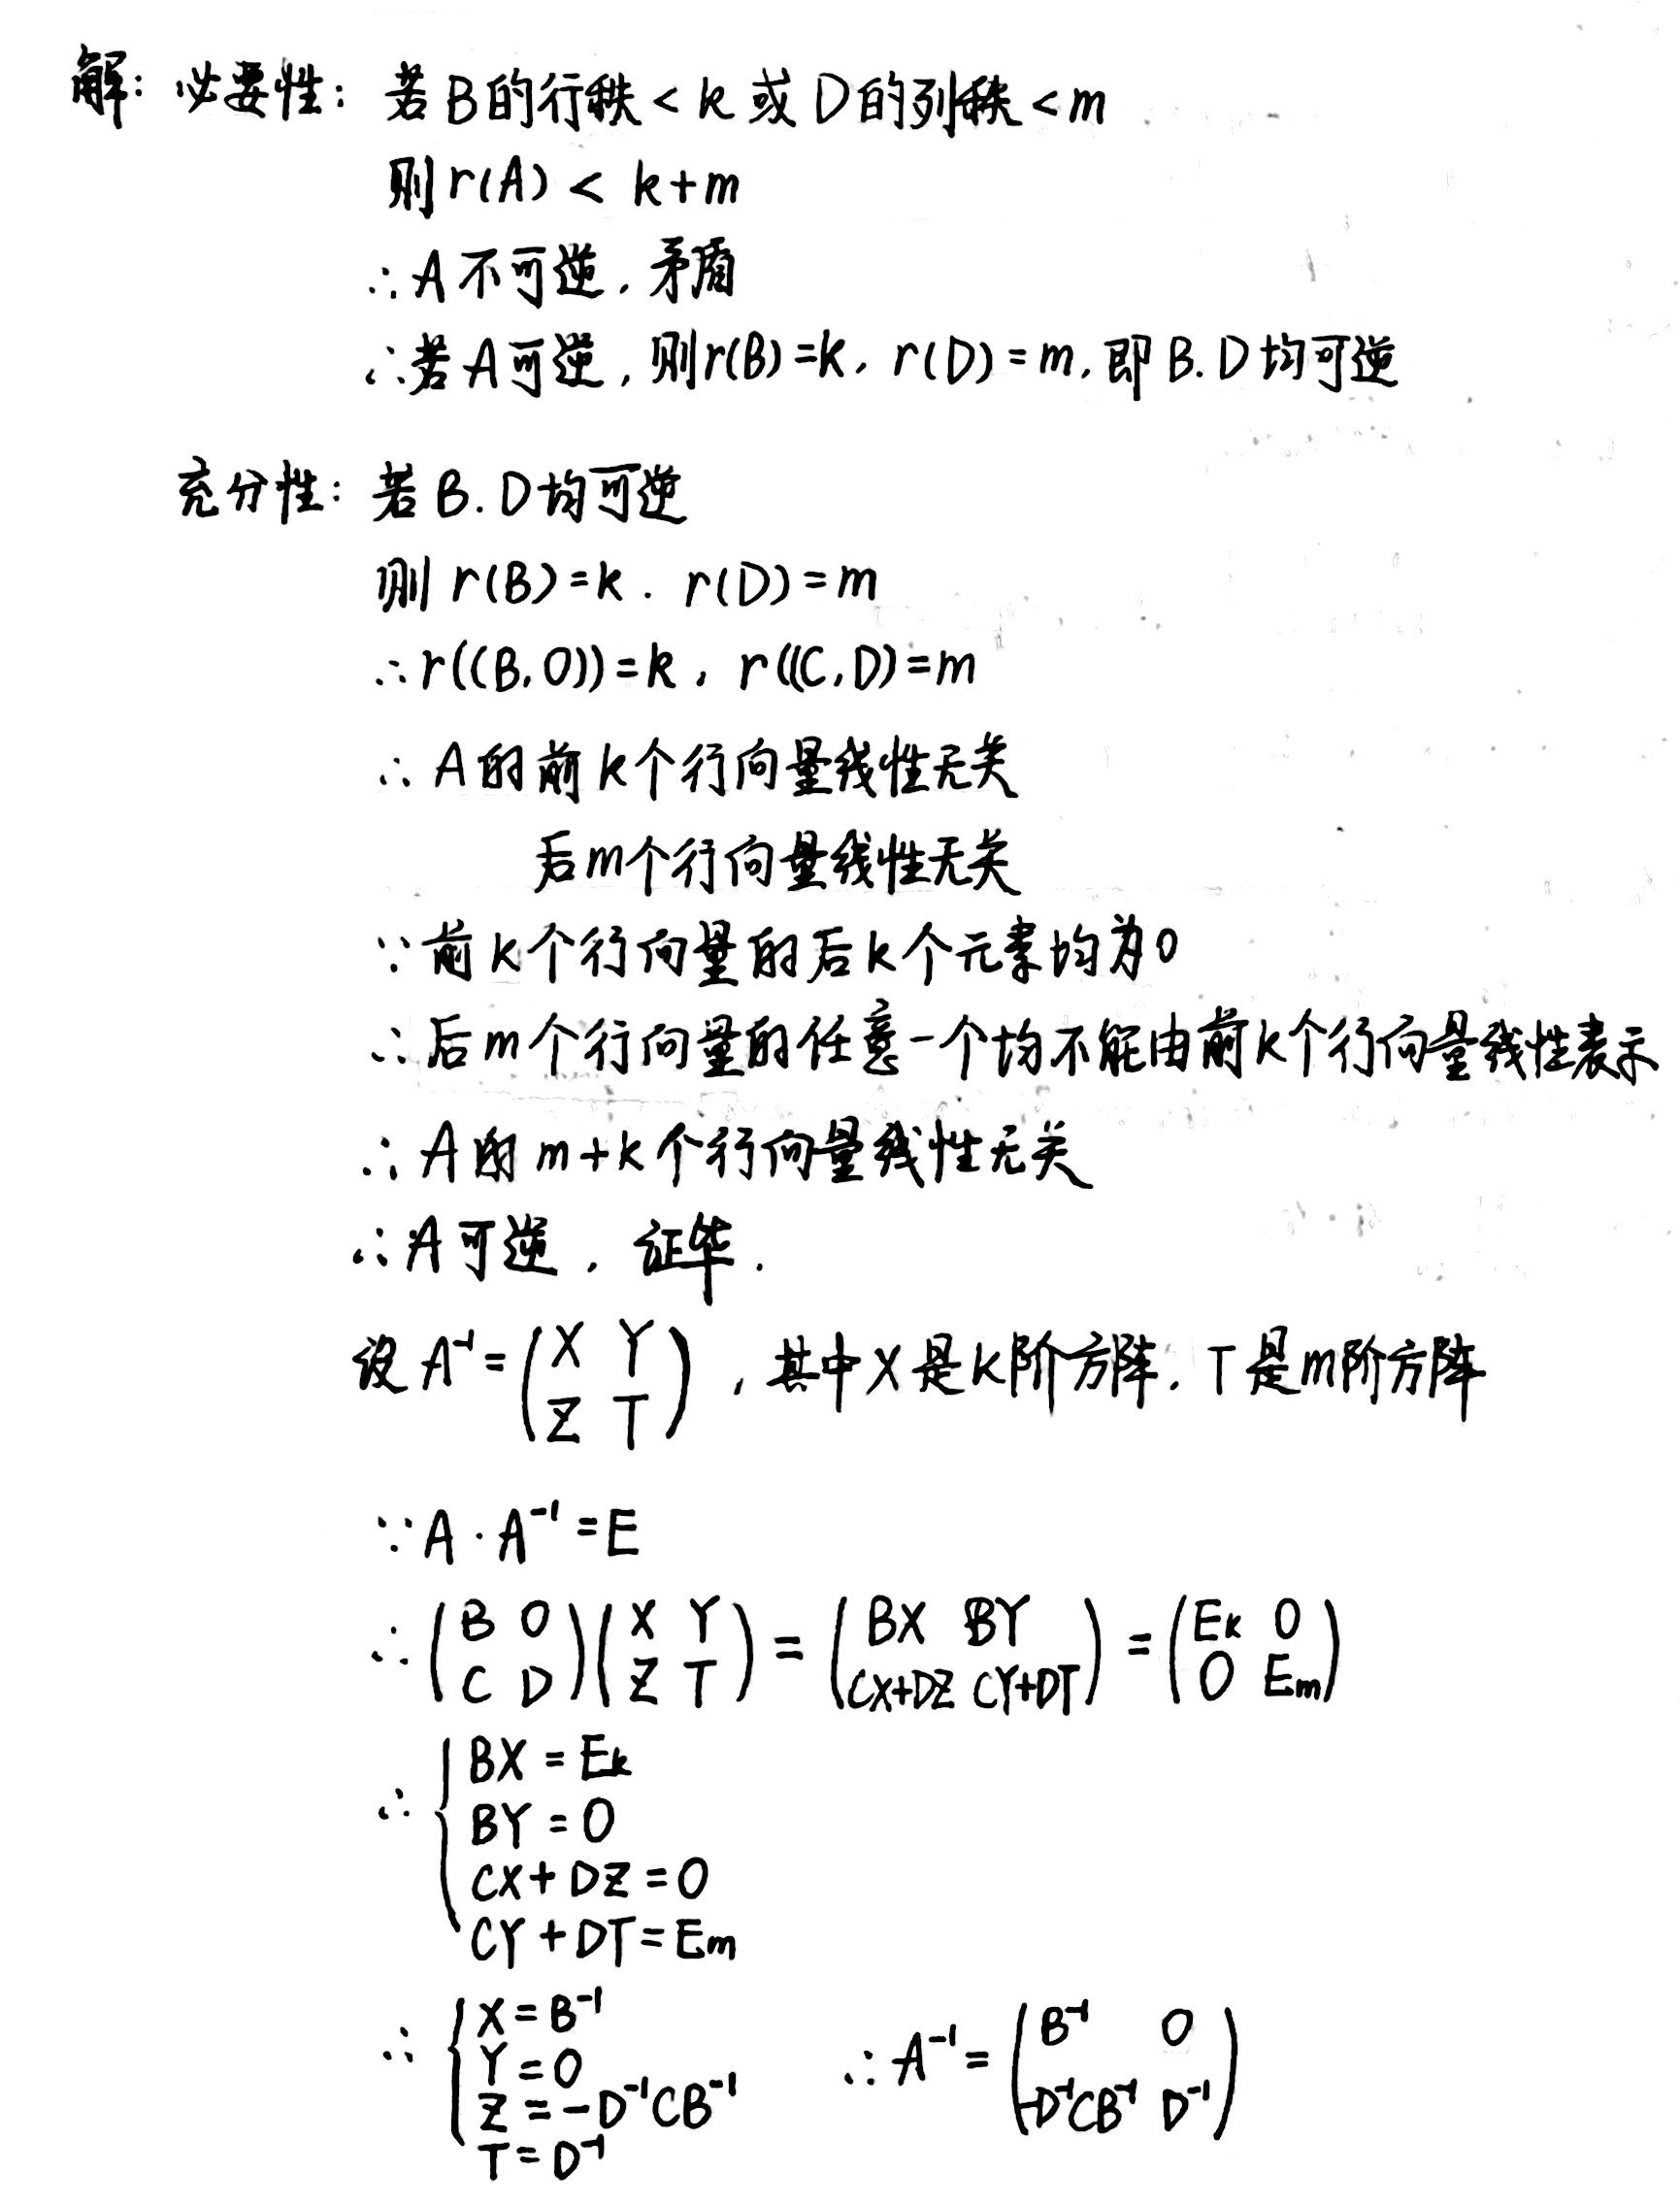 解: 必要性: 若B的行秩<k或D的列秩<m
则r(A) < k+m
∴A不可逆, 矛盾
∴若A可逆, 则r(B)=k, r(D)=m, 即B.D均可逆
充分性: 若B.D均可逆
则 r(B)=k. r(D)=m
∴r((B,0))=k, r((C,D)=m
∴A的前k个行向量线性无关
后m个行向量线性无关
∵前k个行向量的后k个元素均为0
∴后m个行向量的任意一个均不能由前k个行向量线性表示
∴A的m+k个行向量线性无关
∴A可逆, 证毕.
设A⁻¹=(X Y
Z T), 其中X是k阶方阵, T是m阶方阵
∵A·A⁻¹=E
∴(B 0
C D)(X Y
Z T) = (BX BY
CX+DZ CY+DT) = (Ek 0
0 Em)
∴{BX=Ek
BY=0
CX+DZ=0
CY+DT=Em
∴{X=B⁻¹
Y=0
Z=-D⁻¹CB⁻¹
T=D⁻¹
∴A⁻¹=(B⁻¹ 0
-D⁻¹CB⁻¹ D⁻¹)